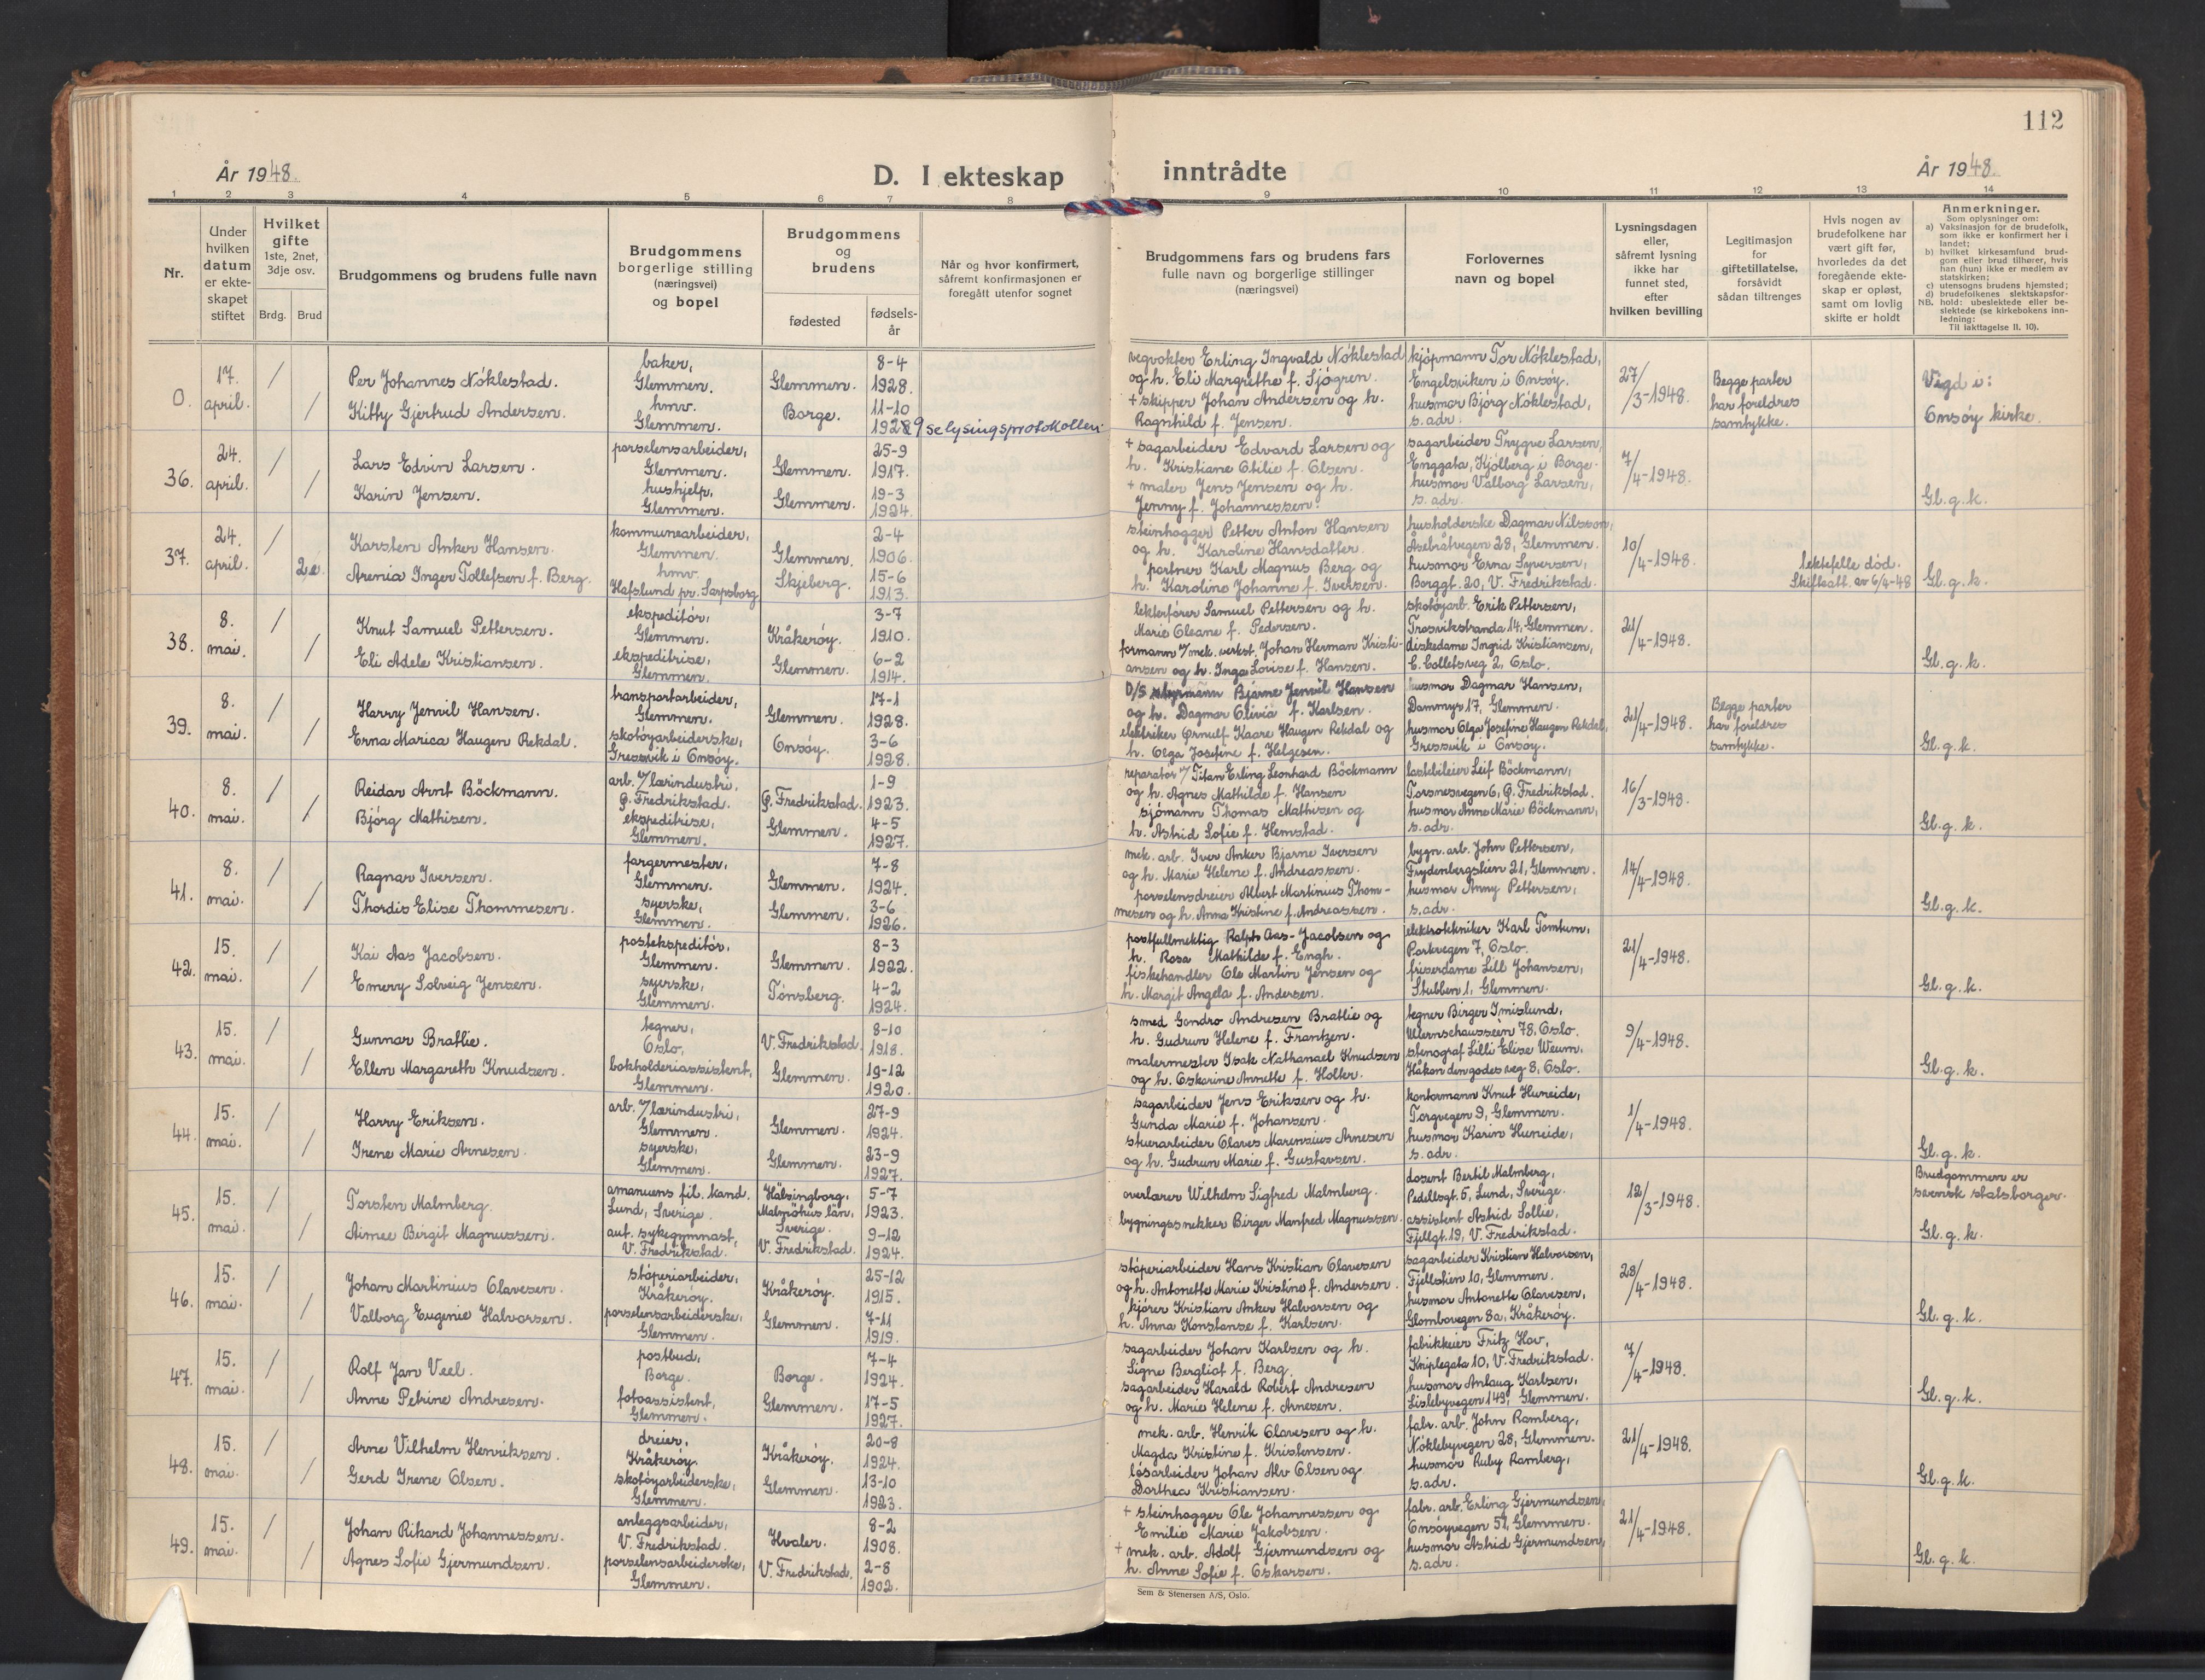 112
År 1948.
D. I ekteskap inntrådte
År 1948.
1 2 3 4 5 6 7 8 9 10 11 12 13 14
Nr.
Under hvilken datum er ekte-skapet stiftet
Hvilket gifte
1ste, 2net, 3dje osv.
Brdg. Brud
Brudgommens og brudens fulle navn
Brudgommens borgerlige stilling (næringsvei) og bopel
Brudgommens og brudens
fødested
fødsels-år
Når og hvor konfirmert, såfremt konfirmasjonen er foregått utenfor sognet
Brudgommens fars og brudens fars fulle navn og borgerlige stillinger (næringsvei)
Forlovernes navn og bopel
Lysningsdagen eller, såfremt lysning ikke har funnet sted, efter hvilken bevilling
Legitimasjon for giftetillatelse, forsåvidt sådan tiltrenges
Hvis nogen av brudefolkene har vært gift før, hvorledes da det foregående ekte-skap er opløst, samt om lovlig skifte er holdt
Anmerkninger.
Som oplysninger om:
a) Vaksinasjon for de brudefolk, som ikke er konfirmert her i landet;
b) hvilket kirkesamfund brud-gom eller brud tilhører, hvis han (hun) ikke er medlem av statskirken;
c) utensogns brudens hjemsted;
d) brudefolkenes slektskapsfor-hold: ubeslektede eller be-slektede (se kirkebokens inn-ledning:
NB.
Til iakttagelse II. 10).
0. 17. april. / Per Johannes Nóklestad. baker, Glemmen. Glemmen. 8-4 1928.
/ Kitty Gjertrud Andersen. hmv. Glemmen. Borge. 11-10 1928
9 se lysingsprotokollen.
vegvokter Erling Ingvald Nóklestad
og h. Eli Margrethe f. Sjógren.
+ skipper Johan Andersen og h.
Ragnhild f. Jensen.
kjópmann Tor Nóklestad,
Engelsviken i Onsóy.
husmor Bjórg Nóklestad,
s. adr.
27/3-1948.
Begge parter
har foreldres
samtykke.
Vigd i:
Onsóy kirke.
36. 24. april. / Lars Edvin Larsen. porselensarbeider, Glemmen. Glemmen. 25-9 1917.
/ Karin Jensen. hushjelp, Glemmen. Glemmen. 19-3 1924.
+ sagarbeider Edvard Larsen og
h. Kristiane Otilie f. Olsen.
+ maler Jens Jensen og h.
Jenny f. Johannessen.
sagarbeider Trygve Larsen,
Enggata, Kjólberg i Borge.
husmor Valborg Larsen,
s. adr.
7/4-1948.
Gl. g. k.
37. 24. april. / Karsten Anker Hansen. kommunearbeider, Glemmen. Glemmen. 2-4 1906.
2. Arenia Inger Tollefsen f. Berg. hmv. Hafslund pr. Sarpsborg. Skjeberg. 15-6 1913.
steinhogger Petter Anton Hansen
og h. Karoline Hansdatter.
portner Karl Magnus Berg og
h. Karoline Johanne f. Iversen.
husholderske Dagmar Nilsson,
Åsebråtvegen 28, Glemmen.
husmor Erna Syversen,
Borggt. 20, V. Fredrikstad.
10/4-1948.
1. ektefelle död.
Skifteatt. av 6/4-48
Gl. g. k.
38. 8. mai. / Knut Samuel Pettersen. ekspeditór, Glemmen. Kråkeróy. 3-7 1910.
/ Eli Adele Kristiansen. ekspeditrise, Glemmen. Glemmen. 6-2 1914.
lekterfórer Samuel Pettersen og h.
Marie Oleane f. Pedersen.
formann v/ mek. verkst. Johan Herman Kristi-
ansen og h. Inga Lovise f. Hansen.
skotóyarb. Erik Pettersen,
Trosvikstranda 14, Glemmen.
diskedame Ingrid Kristiansen,
C. Colletsveg 2, Oslo.
21/4-1948.
Gl. g. k.
39. 8. mai. / Harry Jenvil Hansen. transportarbeider, Glemmen. Glemmen. 17-1 1928.
/ Erna Marica Haugen Rekdal. skotóyarbeiderske, Gressvik i Onsóy. Onsóy. 3-6 1928.
D/S styrmann Bjarne Jenvil Hansen
og h. Dagmar Olivia f. Karlsen.
elektriker Ørnulf Kaare Haugen Rekdal og
h. Olga Josefine f. Helgesen.
husmor Dagmar Hansen,
Dammyr 17, Glemmen.
husmor Olga Josefine Haugen Rekdal,
Gressvik i Onsóy.
21/4-1948.
Begge parter
har foreldres
samtykke.
Gl. g. k.
40. 8. mai. / Reidar Arnt Böckmann. arb. v/ lærindustri, G. Fredrikstad. G. Fredrikstad. 1-9 1923.
/ Bjórg Mathisen. ekspeditrise, Glemmen. Glemmen. 4-5 1927.
reparatór v/ Titan Erling Leonhard Böckmann
og h. Agnes Mathilde f. Hansen
sjómann Thomas Mathisen og
h. Astrid Sofie f. Hemstad.
lastebileier Leif Böckmann,
Torsnesvegen 6, G. Fredrikstad.
husmor Anne Marie Böckmann,
s. adr.
16/3-1948.
Gl. g. k.
41. 8. mai. / Ragnar Iversen. fargermester, Glemmen. Glemmen. 7-8 1924.
/ Thordis Elise Thommesen. syerske, Glemmen. Glemmen. 3-6 1926.
mek. arb. Iver Anker Bjarne Iversen
og h. Marie Helene f. Andreassen.
porselensdreier Albert Martinius Thom-
mesen og h. Anna Kristine f. Andreassen.
bygn. arb. John Pettersen,
Frydenbergstien 21, Glemmen.
husmor Anny Pettersen,
s. adr.
14/4-1948.
Gl. g. k.
42. 15. mai. / Kai Aas Jacobsen. postekspeditór, Glemmen. Glemmen. 8-3 1922.
/ Emery Solveig Jensen. syerske, Glemmen. Tónsberg. 4-2 1924.
postfullmektig Ralph Aas-Jacobsen og
h. Rosa Mathilde f. Engh.
fiskehandler Ole Martin Jensen og
h. Margit Angela f. Andersen.
elektrotekniker Karl Tomtum,
Parkvegen 7, Oslo.
friserdame Lill Johansen,
Stubben 1, Glemmen.
21/4-1948.
Gl. g. k.
43. 15. mai. / Gunnar Bratlie. tegner, Oslo. V. Fredrikstad. 8-10 1918.
/ Ellen Margareth Knudsen. bokholderiassistent, Glemmen. Glemmen. 19-12 1920.
smed Gendro Andresen Bratlie og
h. Gudrun Helene f. Frantzen.
malermester Isak Nathanael Knudsen
og h. Oskarine Annette f. Holter.
tegner Birger Imislund,
Wernschausseen 78, Oslo.
stenograf Lilli Elise Weum,
Håkon den godes veg 8, Oslo.
9/4-1948.
Gl. g. k.
44. 15. mai. / Harry Eriksen. arb. v/ lærindustri, Glemmen. Glemmen. 27-9 1924.
/ Irene Marie Arnesen. syerske, Glemmen. Glemmen. 23-9 1927.
sagarbeider Jens Eriksen og h.
Gunda Marie f. Johansen.
stuerarbeider Olaves Marensius Arnesen
og h. Gudrun Marie f. Gustavsen.
kontormann Knut Huneide,
Torgvegen 9, Glemmen.
husmor Karin Huneide,
s. adr.
1/4-1948.
Gl. g. k.
45. 15. mai. / Torsten Malmberg. amanuens fil. kand. Lund, Sverige. Hälsingborg, Malmöhus län, Sverige. 5-7 1923.
/ Aimee Birgit Magnussen. aut. sykegymnast, V. Fredrikstad. V. Fredrikstad. 9-12 1924.
overlærer Wilhelm Sigfred Malmberg.
bygningssnekker Birger Manfred Magnussen.
dosent Bertil Malmberg,
Pedellsgt. 5, Lund, Sverige.
assistent Astrid Sollie,
Fjellgt. 19, V. Fredrikstad.
12/3-1948.
Brudgommen er
svensk statsborger.
Gl. g. k.
46. 15. mai. / Johan Martinius Olavesen. stóperiarbeider, Kråkeróy. Kråkeróy. 25-12 1915.
/ Valborg Eugenie Halvorsen. porselensarbeiderske, Glemmen. Glemmen. 7-11 1919.
stóperiarbeider Hans Kristian Olavesen
og h. Antonette Marie Kristine f. Andersen.
kjórer Kristian Anker Halvorsen og
h. Anna Konstanse f. Karlsen.
sagarbeider Kristian Halvorsen,
Fjellstien 10, Glemmen.
husmor Antonette Olavesen,
Glombovegen 8a, Kråkeróy.
28/4-1948.
Gl. g. k.
47. 15. mai. / Rolf Jan Veel. postbud, Borge. Borge. 7-4 1924.
/ Anne Petrine Andresen. fotoassistent, Glemmen. Glemmen. 17-5 1927.
sagarbeider Johan Karlsen og h.
Signe Bergliot f. Berg.
sagarbeider Harald Robert Andresen
og h. Marie Helene f. Arnesen.
fabrikkeier Fritz Hov,
Kniplegata 10, V. Fredrikstad.
husmor Anlaug Karlsen,
Lislebyvegen 149, Glemmen.
7/4-1948.
Gl. g. k.
48. 15. mai. / Arne Vilhelm Henriksen. dreier, Kråkeróy. Kråkeróy. 20-8 1924.
/ Gerd Irene Olsen. skotóyarbeiderske, Glemmen. Glemmen. 13-10 1923.
mek. arb. Henrik Olavesen og h.
Magda Kristine f. Kristensen.
lósarbeider Johan Alv Olsen og
Dorthea Kristiansen.
fabr. arb. John Ramberg,
Nóklebyvegen 28, Glemmen.
husmor Ruby Ramberg,
s. adr.
21/4-1948.
Gl. g. k.
49. 15. mai. / Johan Rikard Johannessen. anleggsarbeider, V. Fredrikstad. Hvaler. 8-2 1908.
Agnes Sofie Gjermundsen. porselensarbeiderske, Glemmen. V. Fredrikstad. 2-8 1902.
+ steinhogger Ole Johannessen og
Emilie Marie Jakobsen.
+ mek. arb. Adolf Gjermundsen og
h. Anne Sofie f. Oskarsen.
fabr. arb. Erling Gjermundsen,
Onsóyvegen 57, Glemmen.
husmor Astrid Gjermundsen,
s. adr.
21/4-1948.
Gl. g. k.
Sem & Stenersen A/S, Oslo.